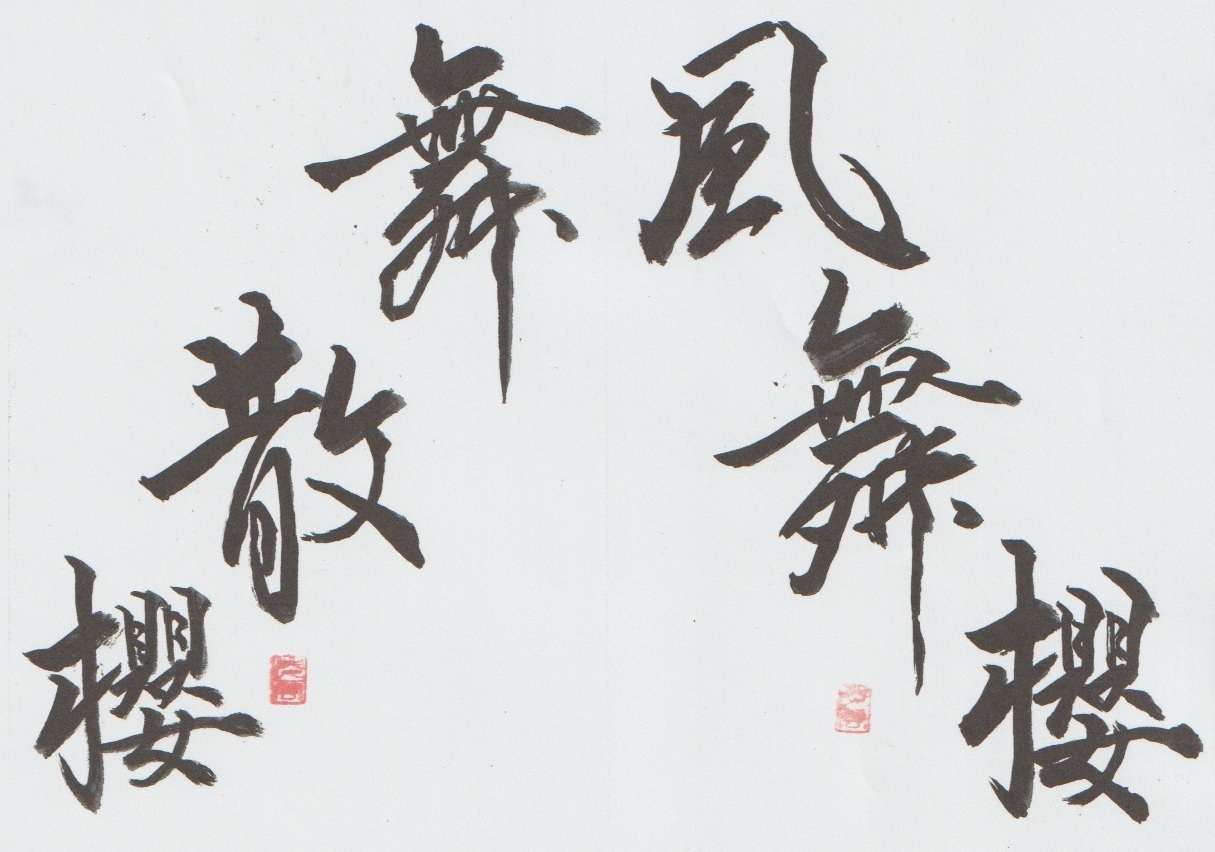 風舞櫻
舞散櫻